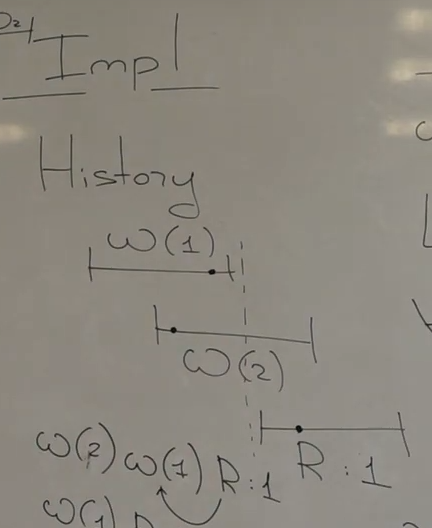 Impl
History
ω(1)
ω(2)
R:1
ω(2) ω(1) R:1
ω(1)